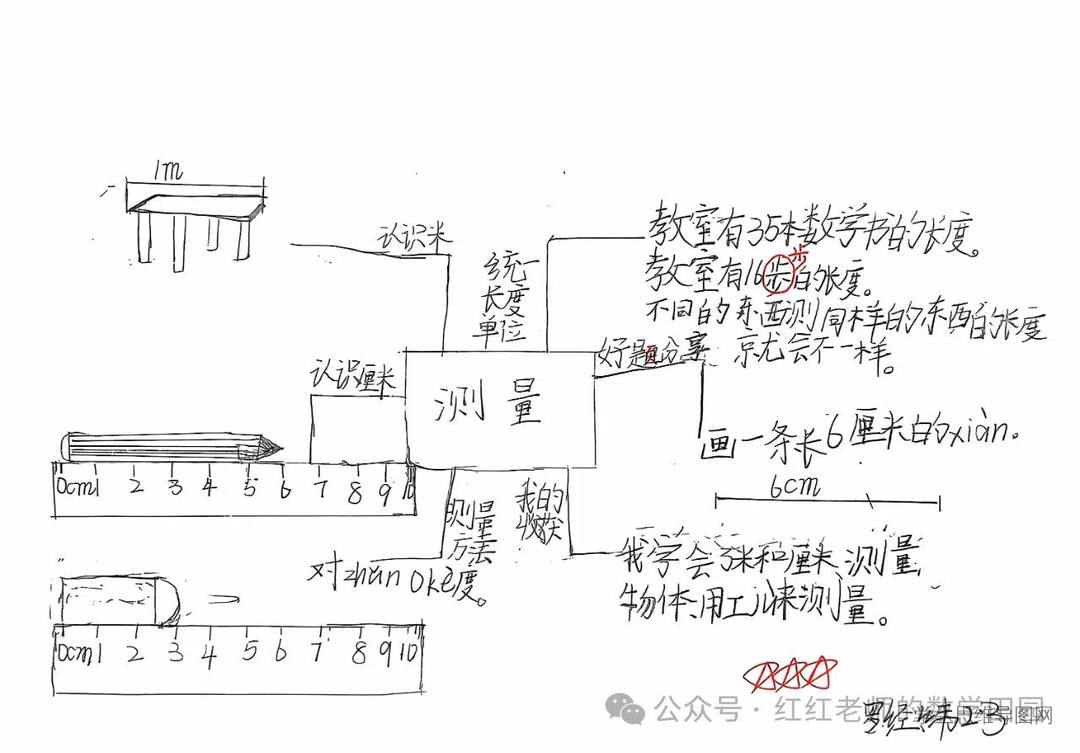 1m
认识米
统一
长度
单位
教室有35本数学书的长度。
步
教室有16步的长度。
不同的东西测同样的东西的长度
就会不一样。
好题分享
认识厘米
测量
画一条长6厘米的xiàn。
6cm
0cm 1 2 3 4 5 6 7 8 9 10
测量
方法
我的
收获
对zhǔn 0kè度。
我学会了米和厘米,测量
物体,用工儿来测量。
0cm 1 2 3 4 5 6 7 8 9 10
公众号·红红老师的数学田园
罗经纬23